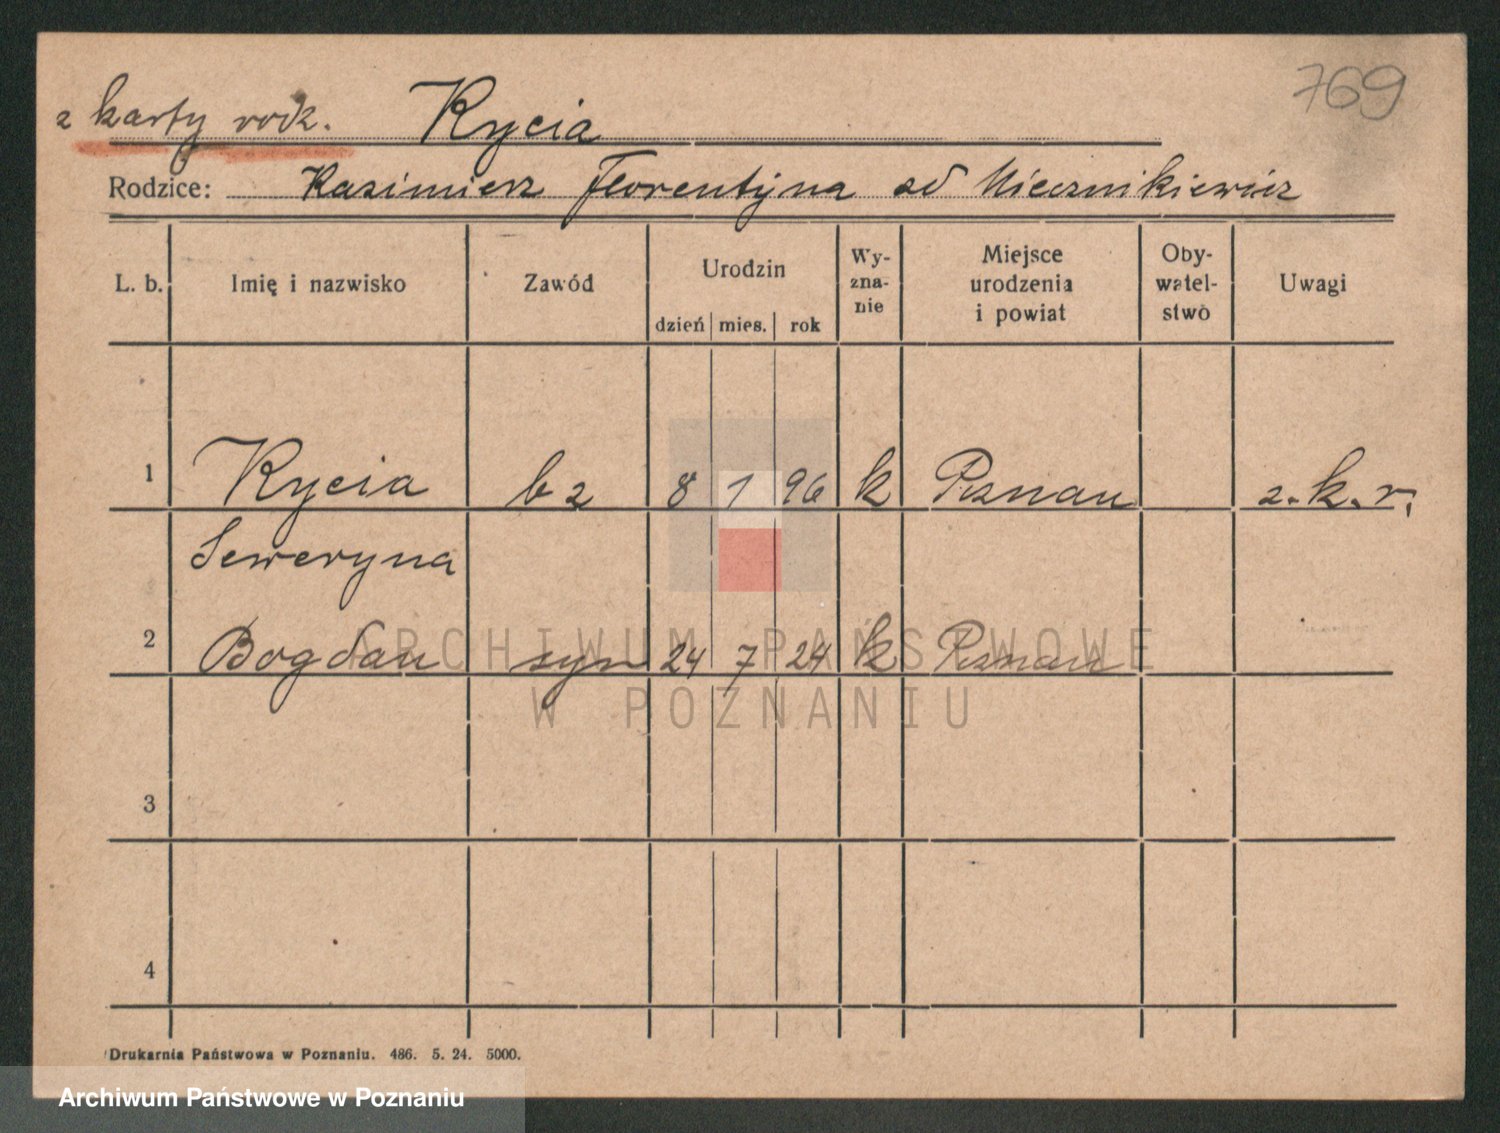 769
z karty rodz. Rycia
Rodzice: Kazimierz Florentyna od Miecznikiewicz
L. b. Imię i nazwisko Zawód Urodzin Wy-zna-nie Miejsce urodzenia i powiat Oby-watel-stwo Uwagi
dzień mies. rok
1 Rycia bz 8 1 96 k Poznan z. k. r.
Seweryna
2 Bogdan syn 24 7 24 k Poznan
3
4
ARCHIWUM PAŃSTWOWE
W POZNANIU
Drukarnia Państwowa w Poznaniu. 486. 5. 24. 5000.
Archiwum Państwowe w Poznaniu